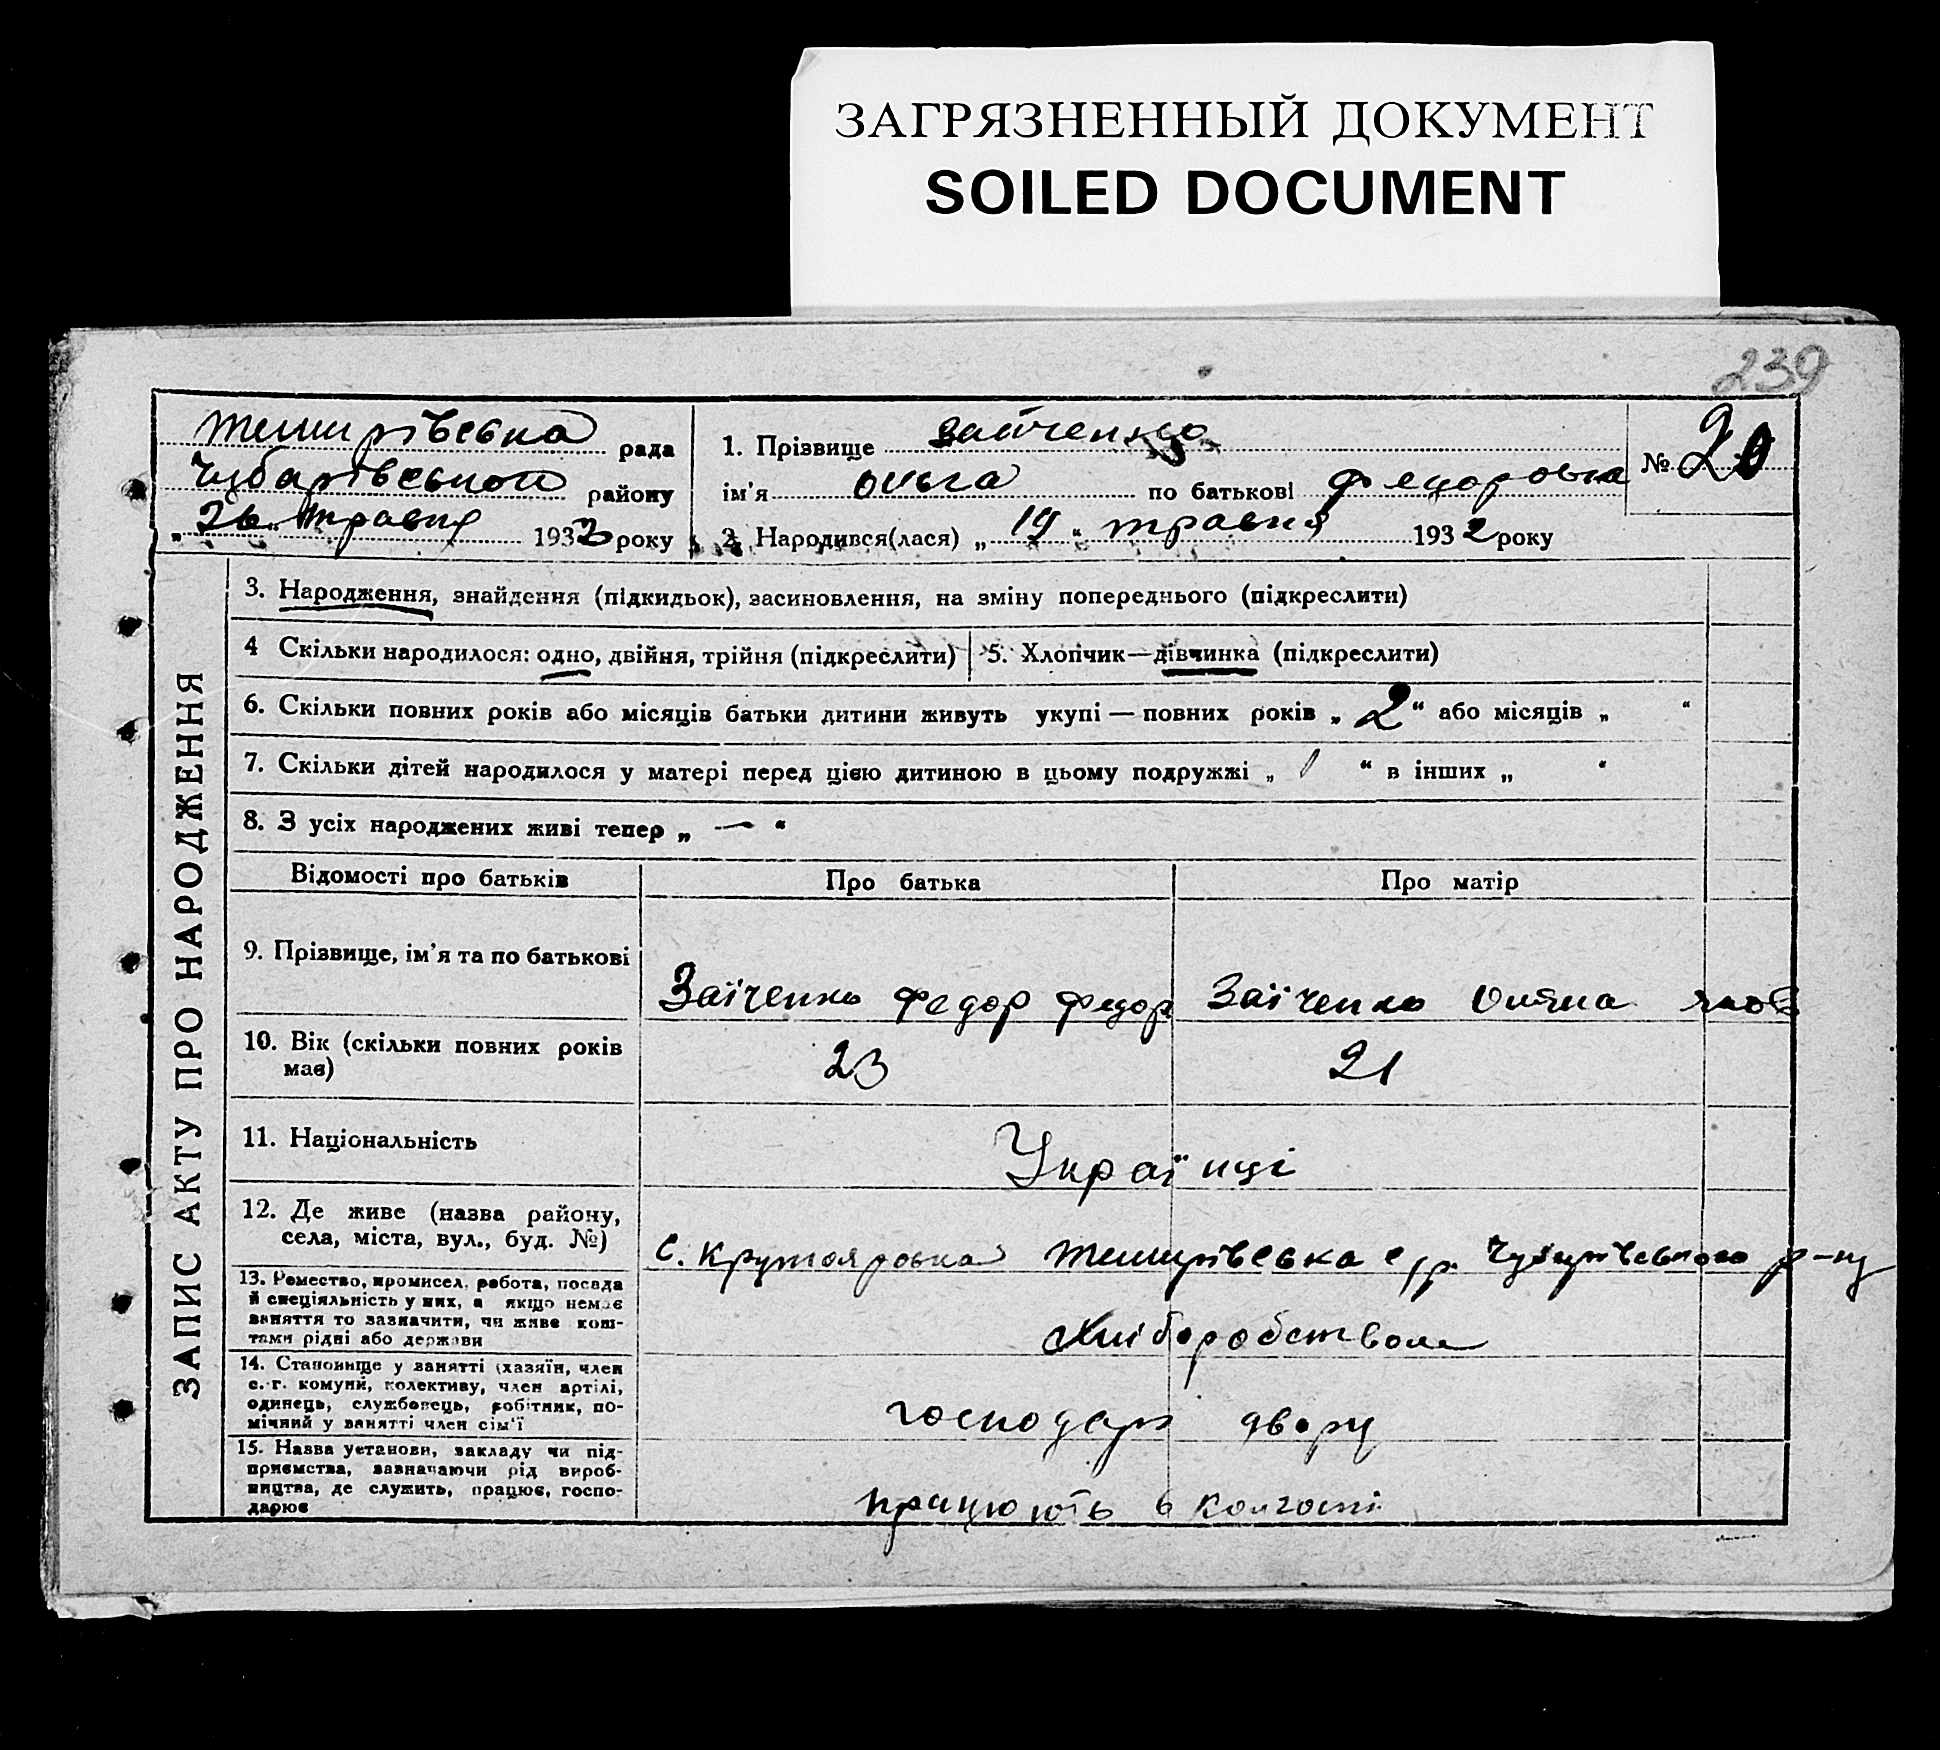 ЗАГРЯЗНЕННЫЙ ДОКУМЕНТ
SOILED DOCUMENT
239
Темирівська рада
Чубарівського району
„26“ травня 1932 року
1. Прізвище Зайченко
ім'я Ольга по батькові Федоровна
№ 20
2. Народився(лася) „19“ травня 1932 року
ЗАПИС АКТУ ПРО НАРОДЖЕННЯ
3. Народження, знайдення (підкидьок), засиновлення, на зміну попереднього (підкреслити)
4 Скільки народилося: одно, двійня, трійня (підкреслити) 5. Хлопчик—дівчинка (підкреслити)
6. Скільки повних років або місяців батьки дитини живуть укупі — повних років „2“ або місяців „ “
7. Скільки дітей народилося у матері перед цією дитиною в цьому подружжі „ “ в інших „ “
8. З усіх народжених живі тепер „—“
Відомості про батьків Про батька Про матір
9. Прізвище, ім'я та по батькові
Заїченко Федор Федор Заїченко Яков
10. Вік (скільки повних років
має)
23 21
11. Національність
Українці
12. Де живе (назва району,
села, міста, вул., буд. №)
с. Крутояровка Темирівська с/р. Чубарівського р-ну
13. Ремество, промисел, робота, посада
й спеціяльність у них, а якщо немає
заняття то зазначити, чи живе кош-
тами рідні або держави
Хліборобством
14. Становище у занятті (хазяїн, член
с.-г. комуни, колективу, член артілі,
одинець, службовець, робітник, по-
мічний у занятті член сім'ї
господарі двору
15. Назва установи, закладу чи під-
приємства, зазначаючи рід вироб-
ництва, де служить, працює, госпо-
дарює
працюють в колгоспі